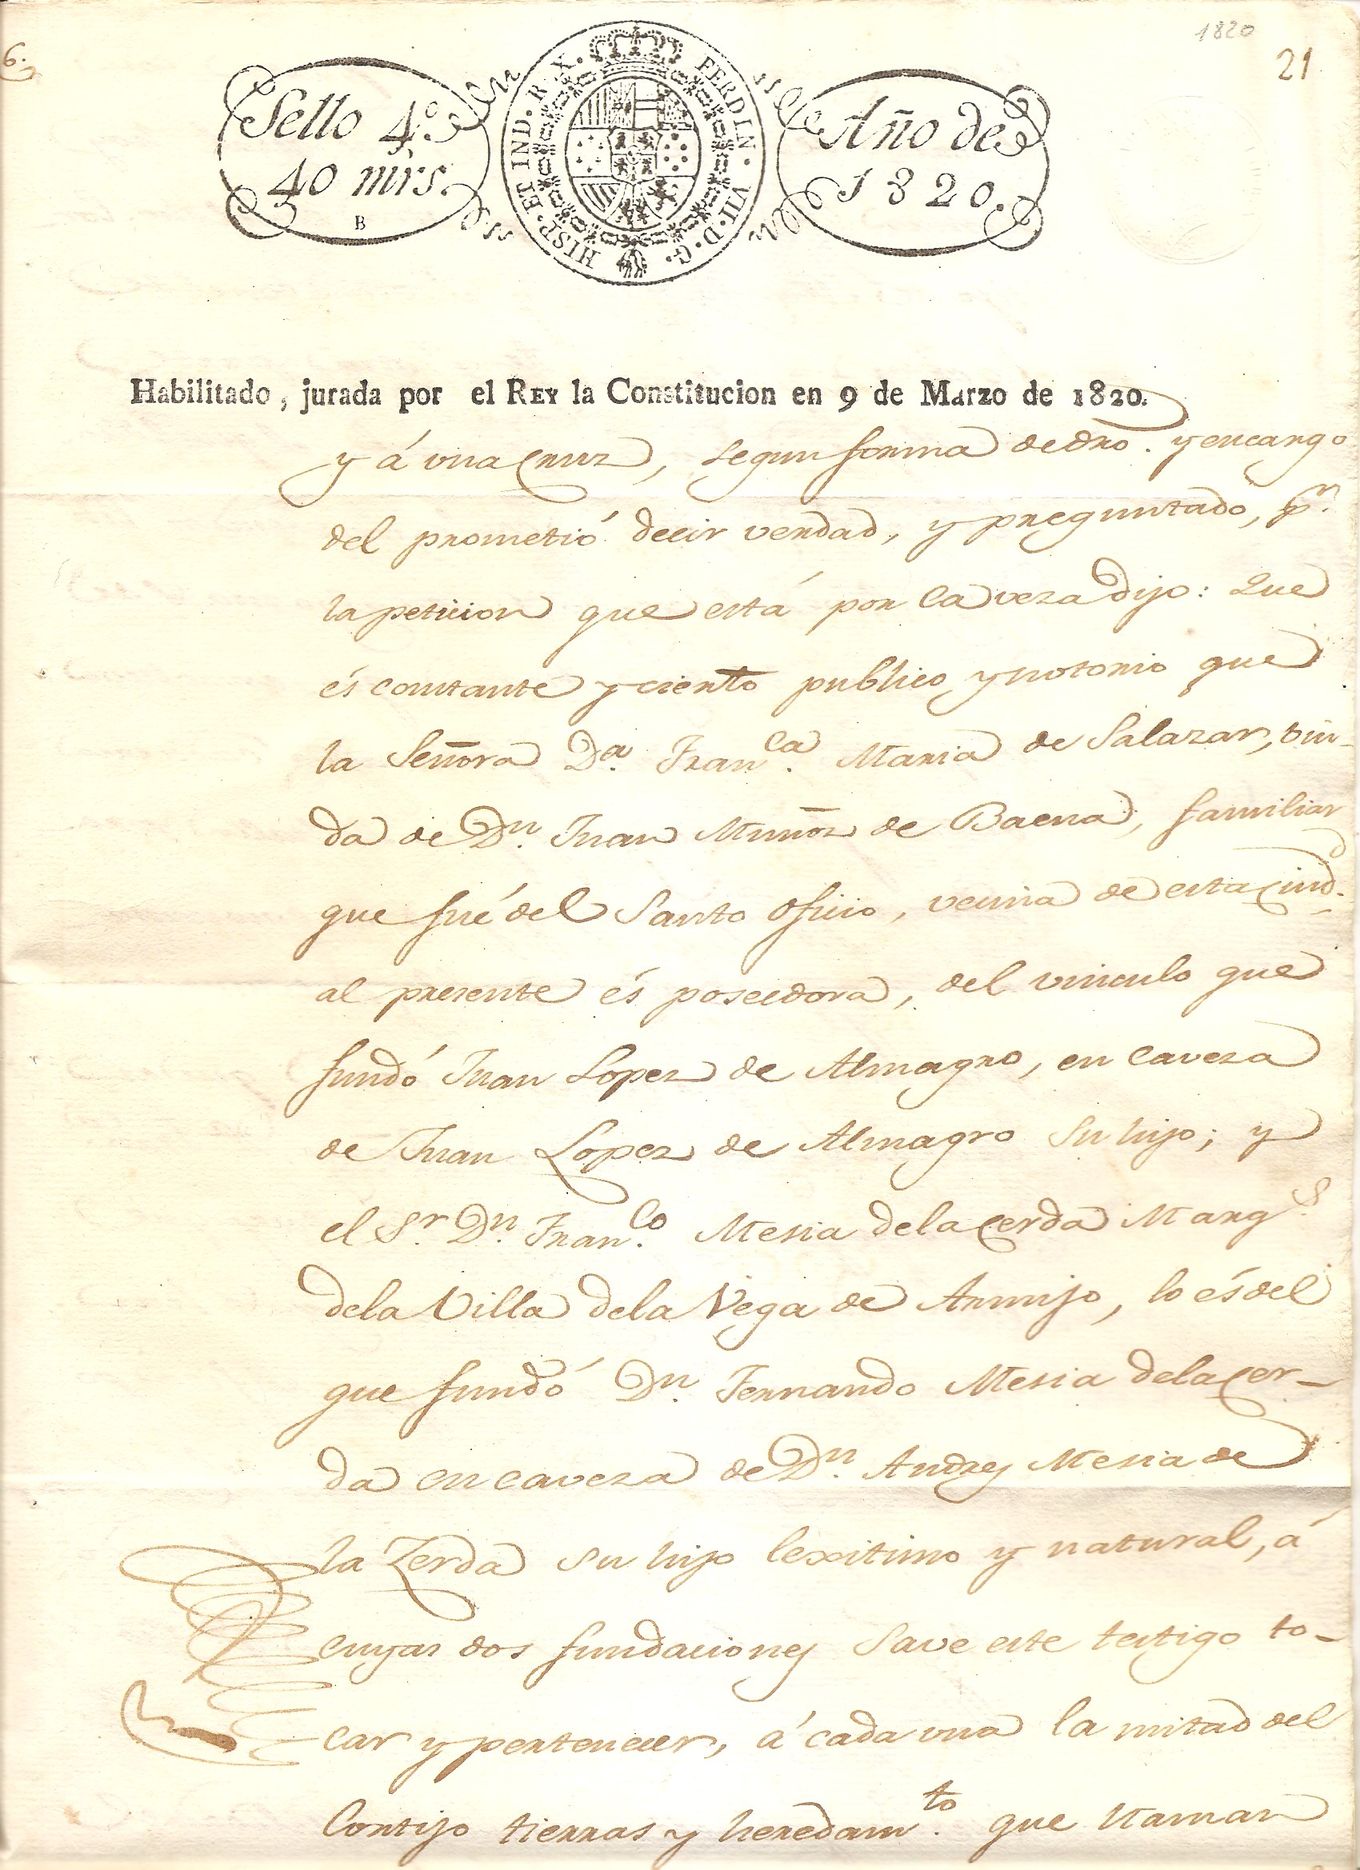 1820
6.
21
Sello 4º
40 mrs.
B
HISP. ET IND. REX. FERDIN. VII. D. G.
Año de
1820.
Habilitado, jurada por el REY la Constitucion en 9 de Marzo de 1820.
y á una Cruz, segun forma de dro. y encargo
del prometió decir verdad, y preguntado, pr.
la peticion que está por Caveza dijo: Que
és constante y cierto publico y notorio que
la Señora Da. Franca. Maria de Salazar, viu-
da de Dn. Juan Muñoz de Baena, familiar
que fué del Santo Oficio, vecina de esta Ciud.
al presente és poseedora, del vinculo que
fundó Juan Lopez de Almagro, en caveza
de Juan Lopez de Almagro su hijo; y
el Sr. Dn. Franco. Mesia de la Cerda Marqs.
de la Villa de la Vega de Armijo, lo és del
que fundó Dn. Fernando Mesia de la Cer-
da en caveza de Dn. Andres Mesia de
la Zerda su hijo lexitimo y natural, á
cuyas dos fundaciones save este testigo to-
car y pertenecer, á cada una la mitad del
Cortijo tierras y heredamto. que llaman